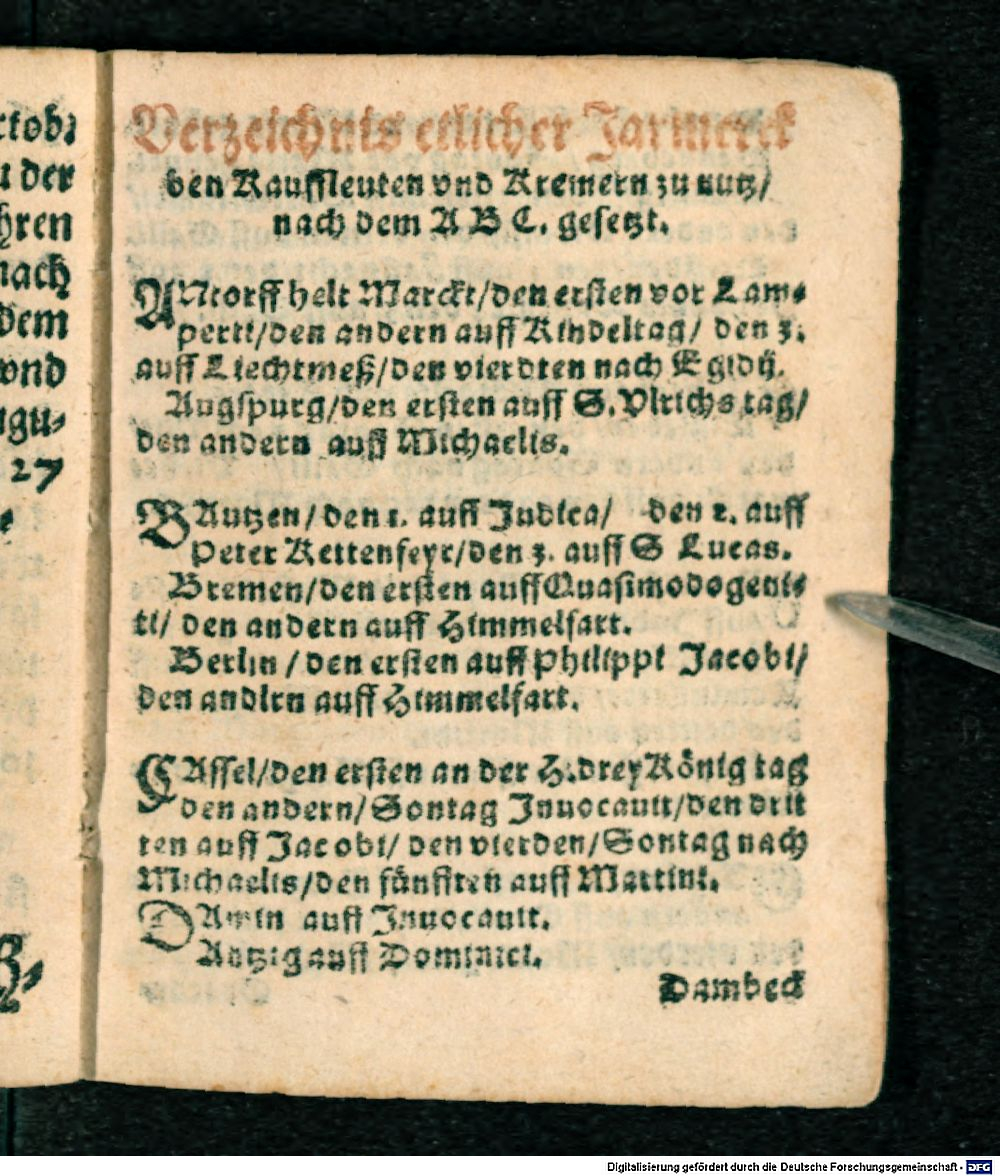 ctob:
u der
hren
nach
dem
vnd
ugu-
27
e
Verzeichnis etlicher Jarmerck
den Kauffleuten vnd Kremern zu nutz/
nach dem A B C. gesetzt.
ANtorff helt Marckt/den ersten vor Lam-
perti/den andern auff Kindeltag/ den 3.
auff Liechtmeß/den vierdten nach Egidij.
Augspurg/den ersten auff S. Vlrichs tag/
den andern auff Michaelis.
BAutzen/den 1. auff Judica/ den 2. auff
Peter Kettenfeyr/den 3. auff S Lucas.
Bremen/den ersten auff Quasimodogeni-
ti/ den andern auff Himmelfart.
Berlin/den ersten auff Philippi Jacobi/
den andlrn auff Himmelfart.
CAssel/den ersten an der H.drey König tag
den andern/Sontag Jnuocauit/den drit
ten auff Jacobi/ den vierden/Sontag nach
Michaelis/den fünfften auff Martini.
DAmin auff Jnuocauit.
Antzig auff Dominici.
Dambeck
Digitalisierung gefördert durch die Deutsche Forschungsgemeinschaft - DFG